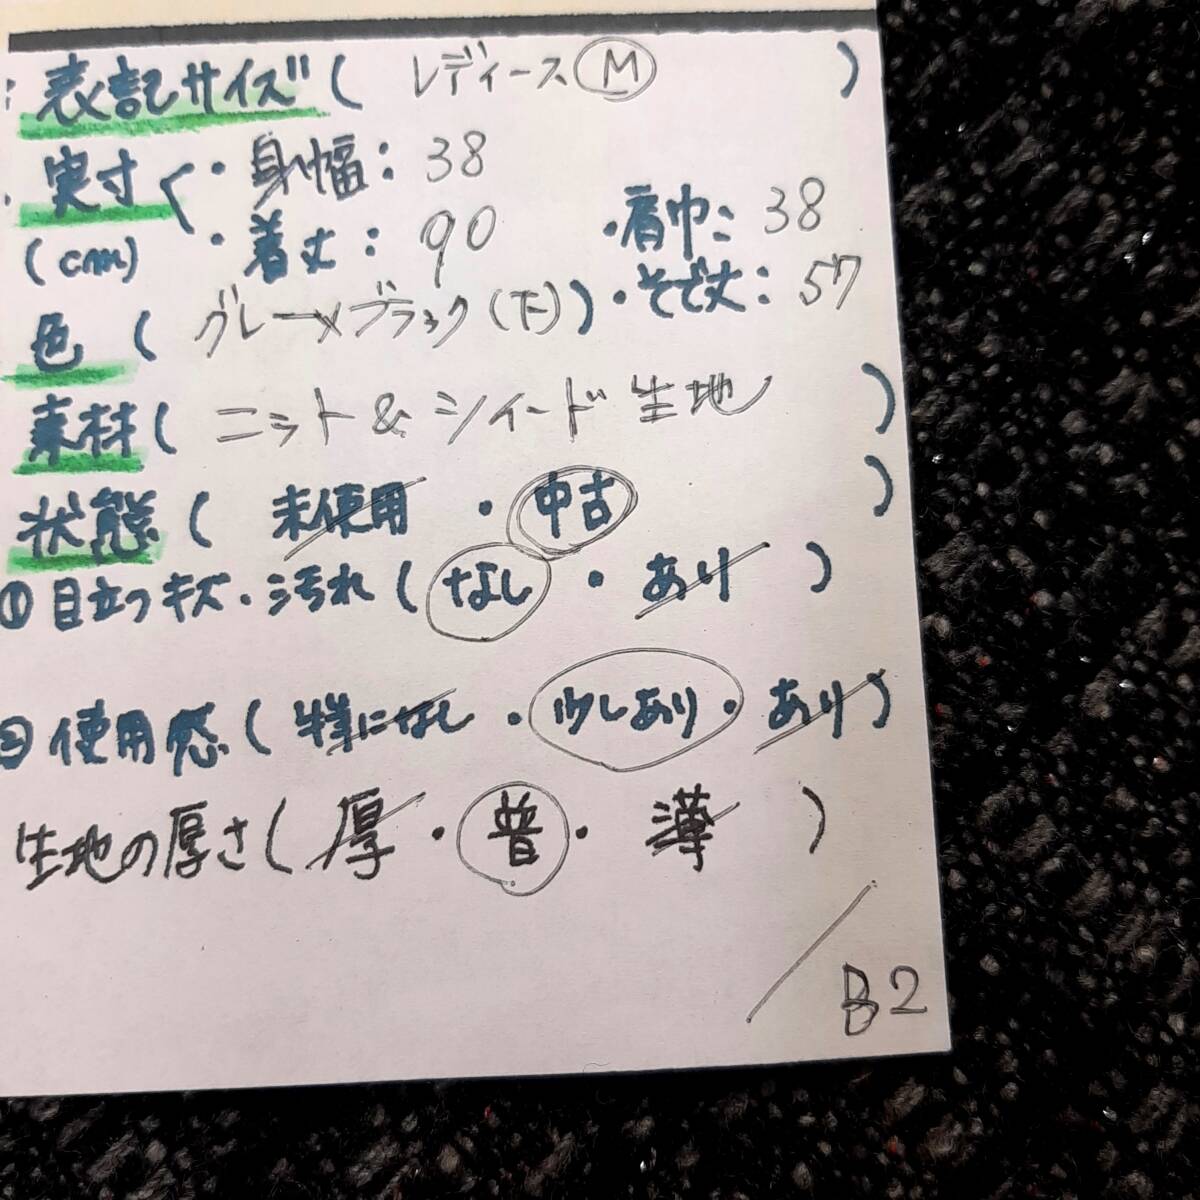 表記サイズ( レディース M )
実寸 ・身幅: 38
(cm) ・着丈: 90 ・肩巾: 38
色( グレー×ブラック(下)) ・そで丈: 57
素材( ニット & シィード 生地 )
状態( 未使用 ・ 中古 )
① 目立つキズ・汚れ( なし ・ あり )
② 使用感( 特になし ・ 少しあり ・ あり )
生地の厚さ( 厚 ・ 普 ・ 薄 )
B2